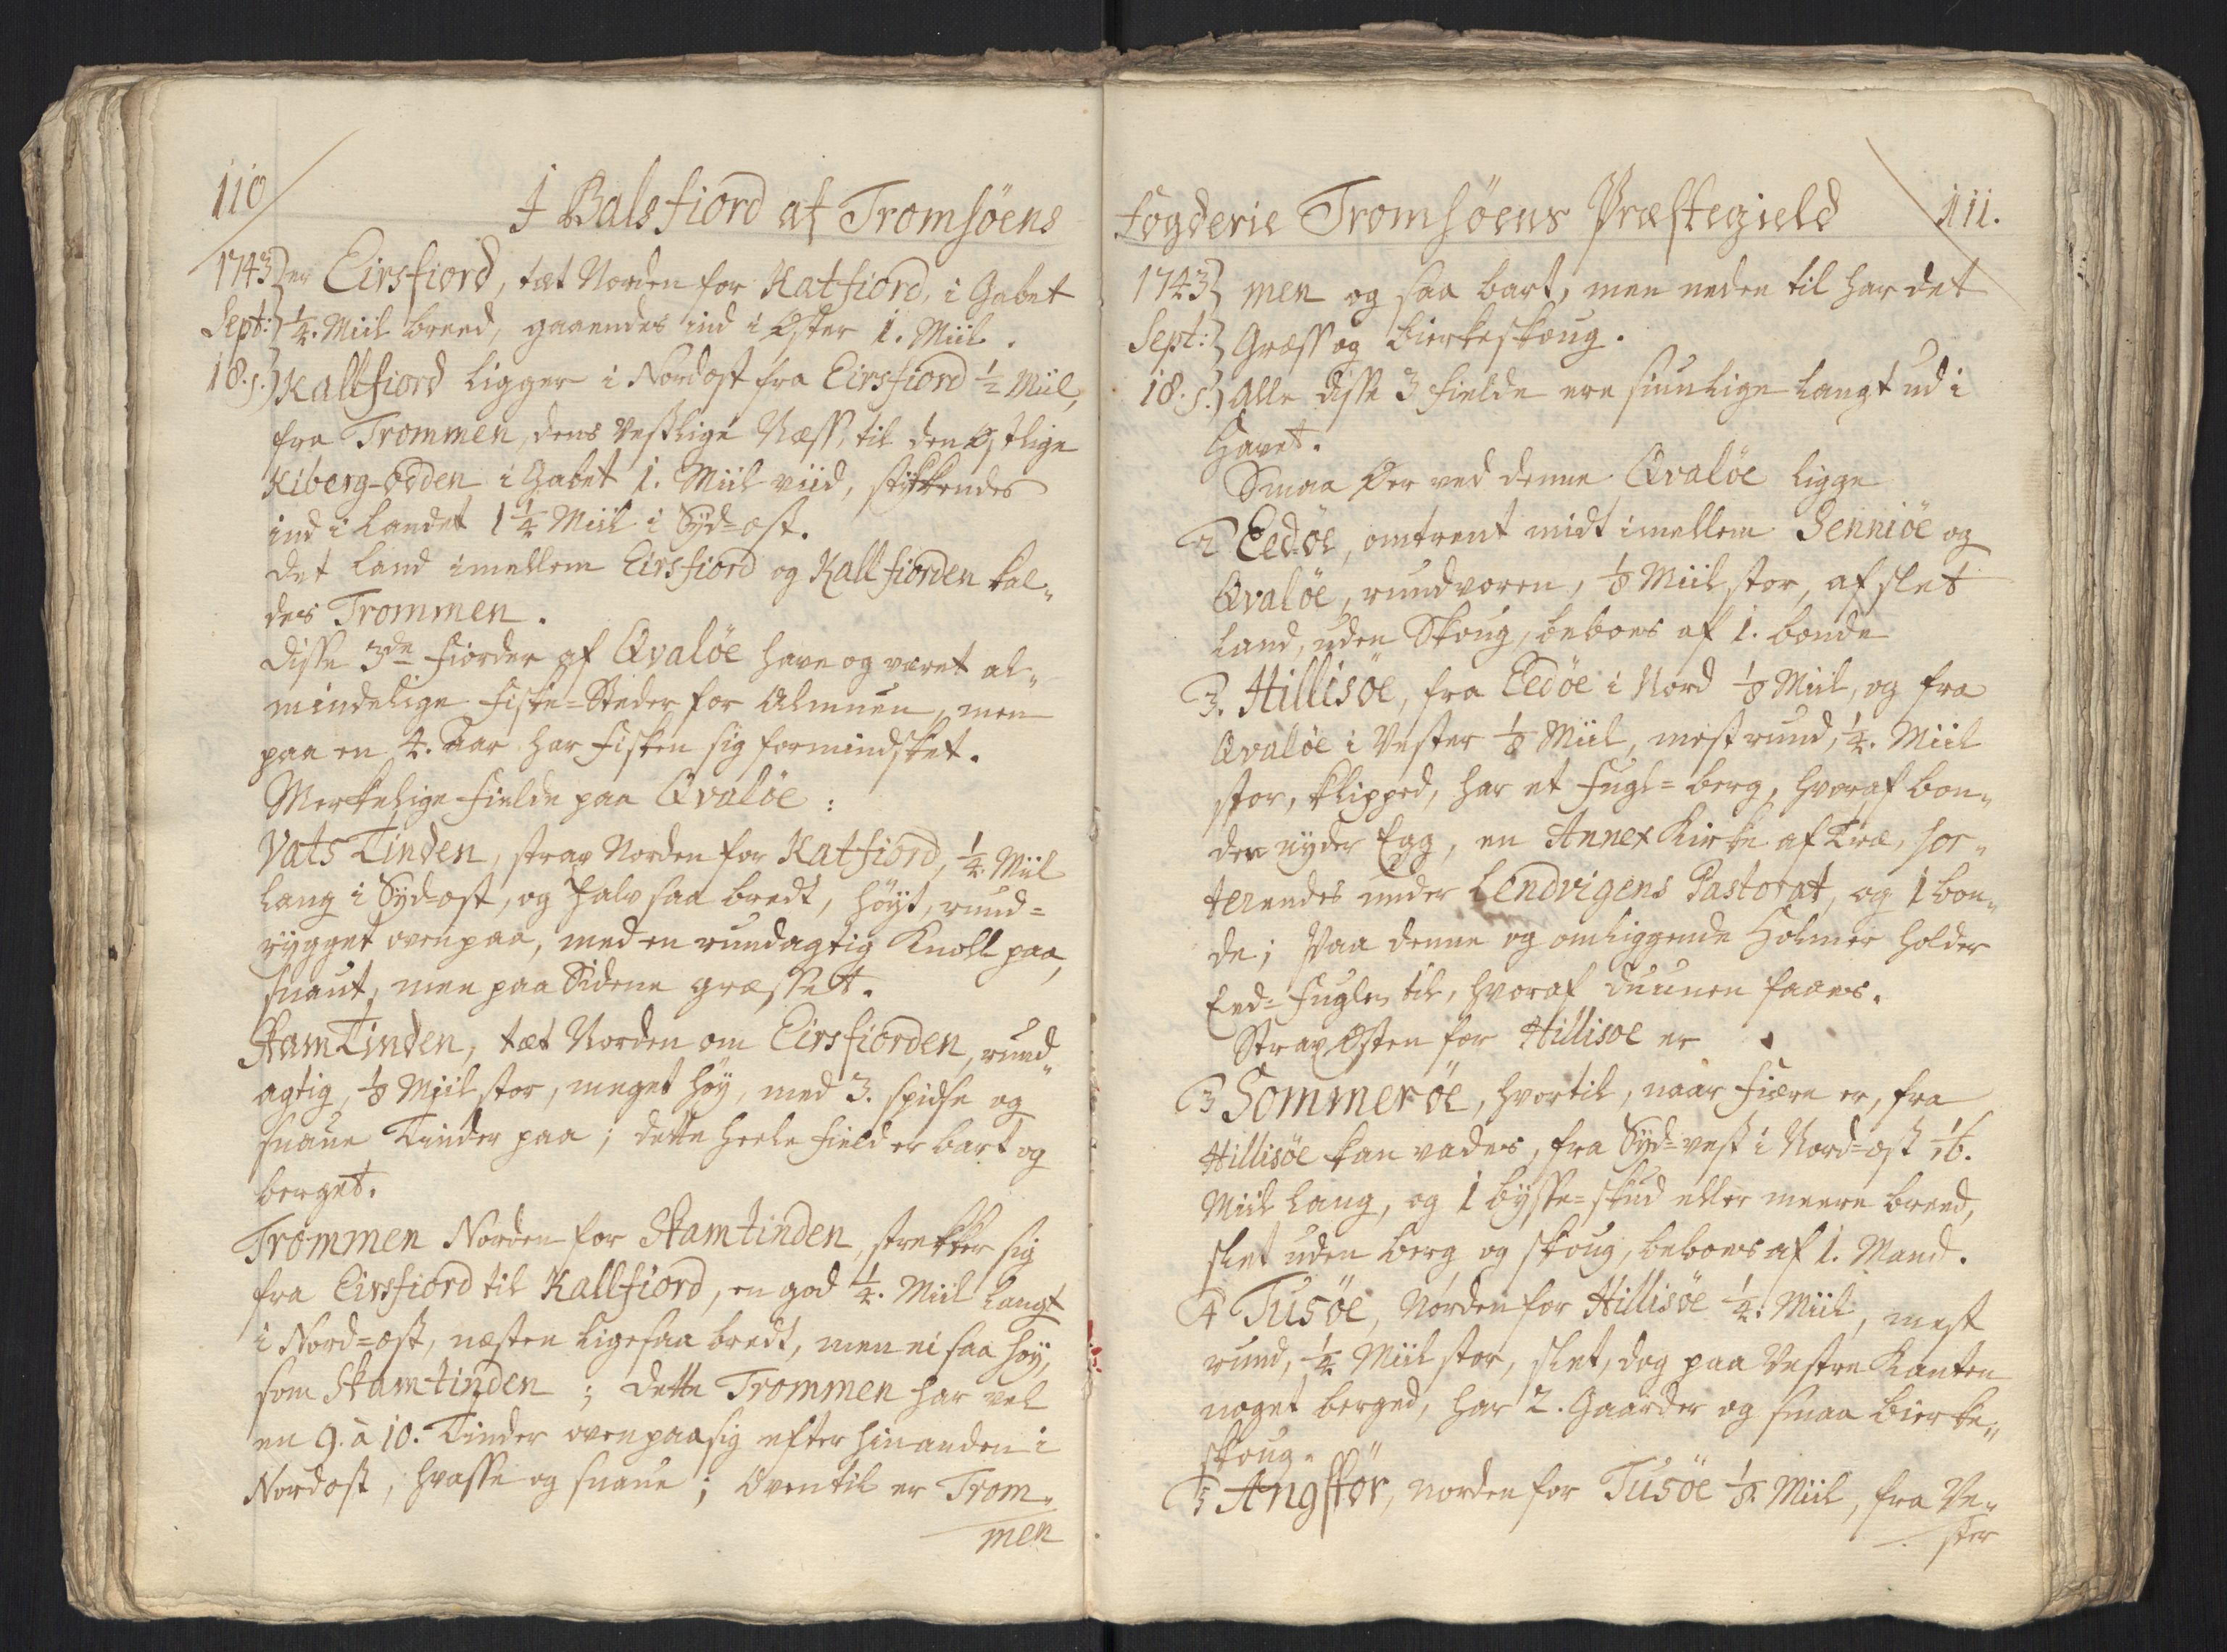 110
I Balsfiord af Tromsöens
1743 er Eirsfiord, tæt Norden for Katfiord, i Gabet
Sept: ¼. Miil breed, gaaendes ind i Øster 1. Miil.
18. s. Kallfiord ligger i Nordost fra Eirsfiord ½ Miil,
fra Trommen, dens Vestlige Næss, til den Østlige
Kiberg-odden i Gabet 1. Miil viid, stikkendes
ind i Landet 1¼ Miil i Syd-ost.
Det Land imellem Eirsfiord og Kallfiorden kal„
des Trommen.
Disse 3de Fiorder af Qvalöe have og været al„
mindelige Fiske-Steder for Almuen, men
paa en 4. Aar har Fisken sig formindsket.
Merkelige Fielde paa Qvalöe:
Vats Tinden, strax Norden for Katfiord, ¼. Miil
lang i Syd-ost, og halv saa bredt, höyt, rund-
rygget ovenpaa, med en rundagtig Knoll paa,
snaut, men paa Sidene græsset.
SkamTinden, tæt Norden om Eirsfiorden, rund„
agtig, ⅛ Miil stor, meget höy, med 3. spidse og
snaue Tinder paa; dette heele Field er bart og
berget.
Trommen Norden for Skamtinden, strekker sig
fra Eirsfiord til Kallfiord, en god ¼. Miil langt
i Nord-ost, næsten ligesaa bredt, men ei saa höy,
som Skamtinden; dette Trommen har vel
en 9. à 10. Tinder ovenpaa sig efter hinanden i
Nordost, hvasse og snaue; Oventil er Trom„
men
Fogderie Tromsöens Præstegield 111.
1743 men og saa bart, men neden til har det
Sept: Græss og Birkeskoug.
18. s. Alle disse 3 Fielde ere siunlige langt ud i
Havet.
Smaa Öer ved denne Qvalöe ligge
Eedöe, omtrent midt imellem Senniöe og
Qvalöe, rundvoren, ⅛ Miil stor, af slet
Land, uden Skoug, beboes af 1. bonde
Hillisöe, fra Eedöe i Nord ⅛ Miil, og fra
Qvalöe i Vester ⅛ Miil, mest rund, ¼. Miil
stor, klipped, har et Fugl-berg, hvoraf bon„
den nyder Egg, en Annex Kirke af Træ, sor„
terendes under Lendvigens Pastorat, og 1 bon„
de; Paa denne og omliggende Holmer holder
Eed-Fugle, til, hvoraf Duunen faaes.
Strax Østen for Hillisoe er
3 Sommeröe, hvortil, naar Fiære er, fra
Hillisöe kan vades, fra Syd-vest i Nord-ost
Miil lang, og 1 bysse-skud eller meere breed,
slet uden berg og skoug, beboes af 1. Mand.
4 Tusöe, Norden for Hillisöe ¼. Miil, mest
rund, ¼ Miil stor, slet, dog paa Vestre Kanten
noget berged, har 2. Gaarder og smaa Birke„
skoug.
5 Angstör, norden for Tusöe ⅛. Miil, fra Ve„
ster